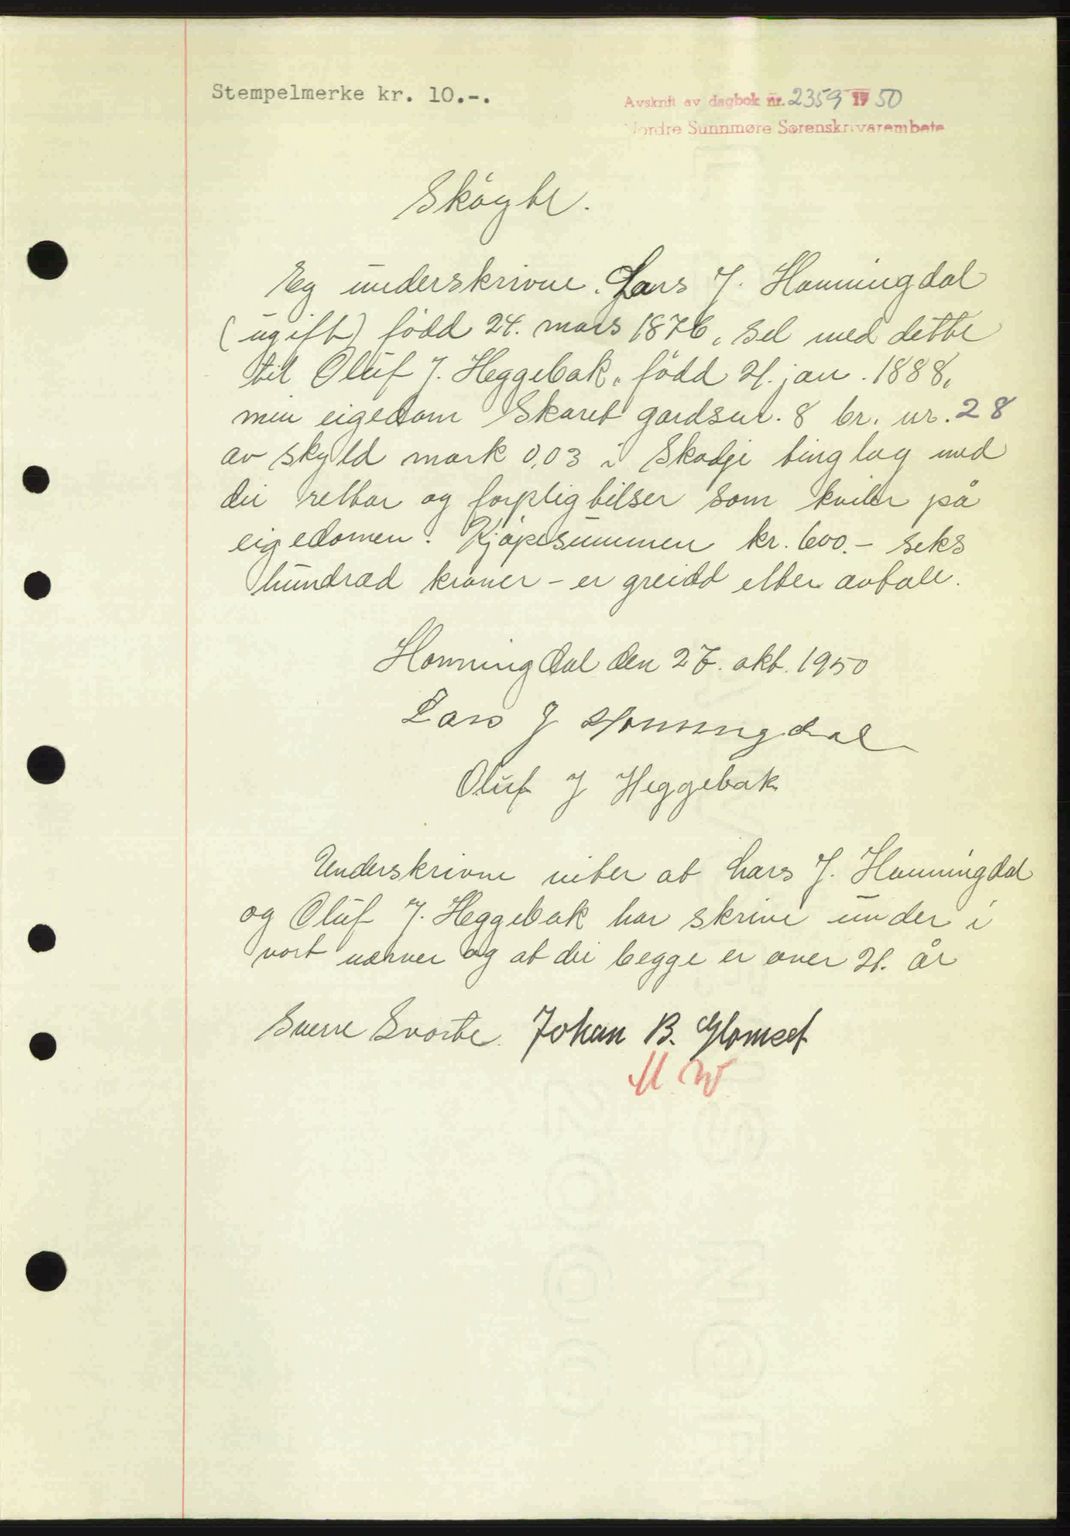 Stempelmerke kr. 10.-.
Avskrift av dagbok nr. 2359 1950
Nordre Sunnmøre Sorenskrivarembete
Skøyte.
Eg underskrivne Lars J. Honningdal
(ugift) fødd 24. mars 1876, sel med dette
til Oluf J. Heggebak, fødd 21. jan. 1888,
min eigedom Skaret gardsnr. 8 br. nr. 28
av skyld mark 0,03 i Skodje tinglag med
dei rettar og forpligtelser som kviler på
eigedomen. Kjøpesummen kr. 600.- seks
hundrad kroner - er greidd etter avtale.
Honningdal den 27. okt. 1950
Lars J Honningdal
Oluf J Heggebak
Underskrivne viter at Lars J. Honningdal
og Oluf J. Heggebak har skrive under i
vort nærver og at dei begge er over 21. år
Sverre Svorte. Johan B. Glomset